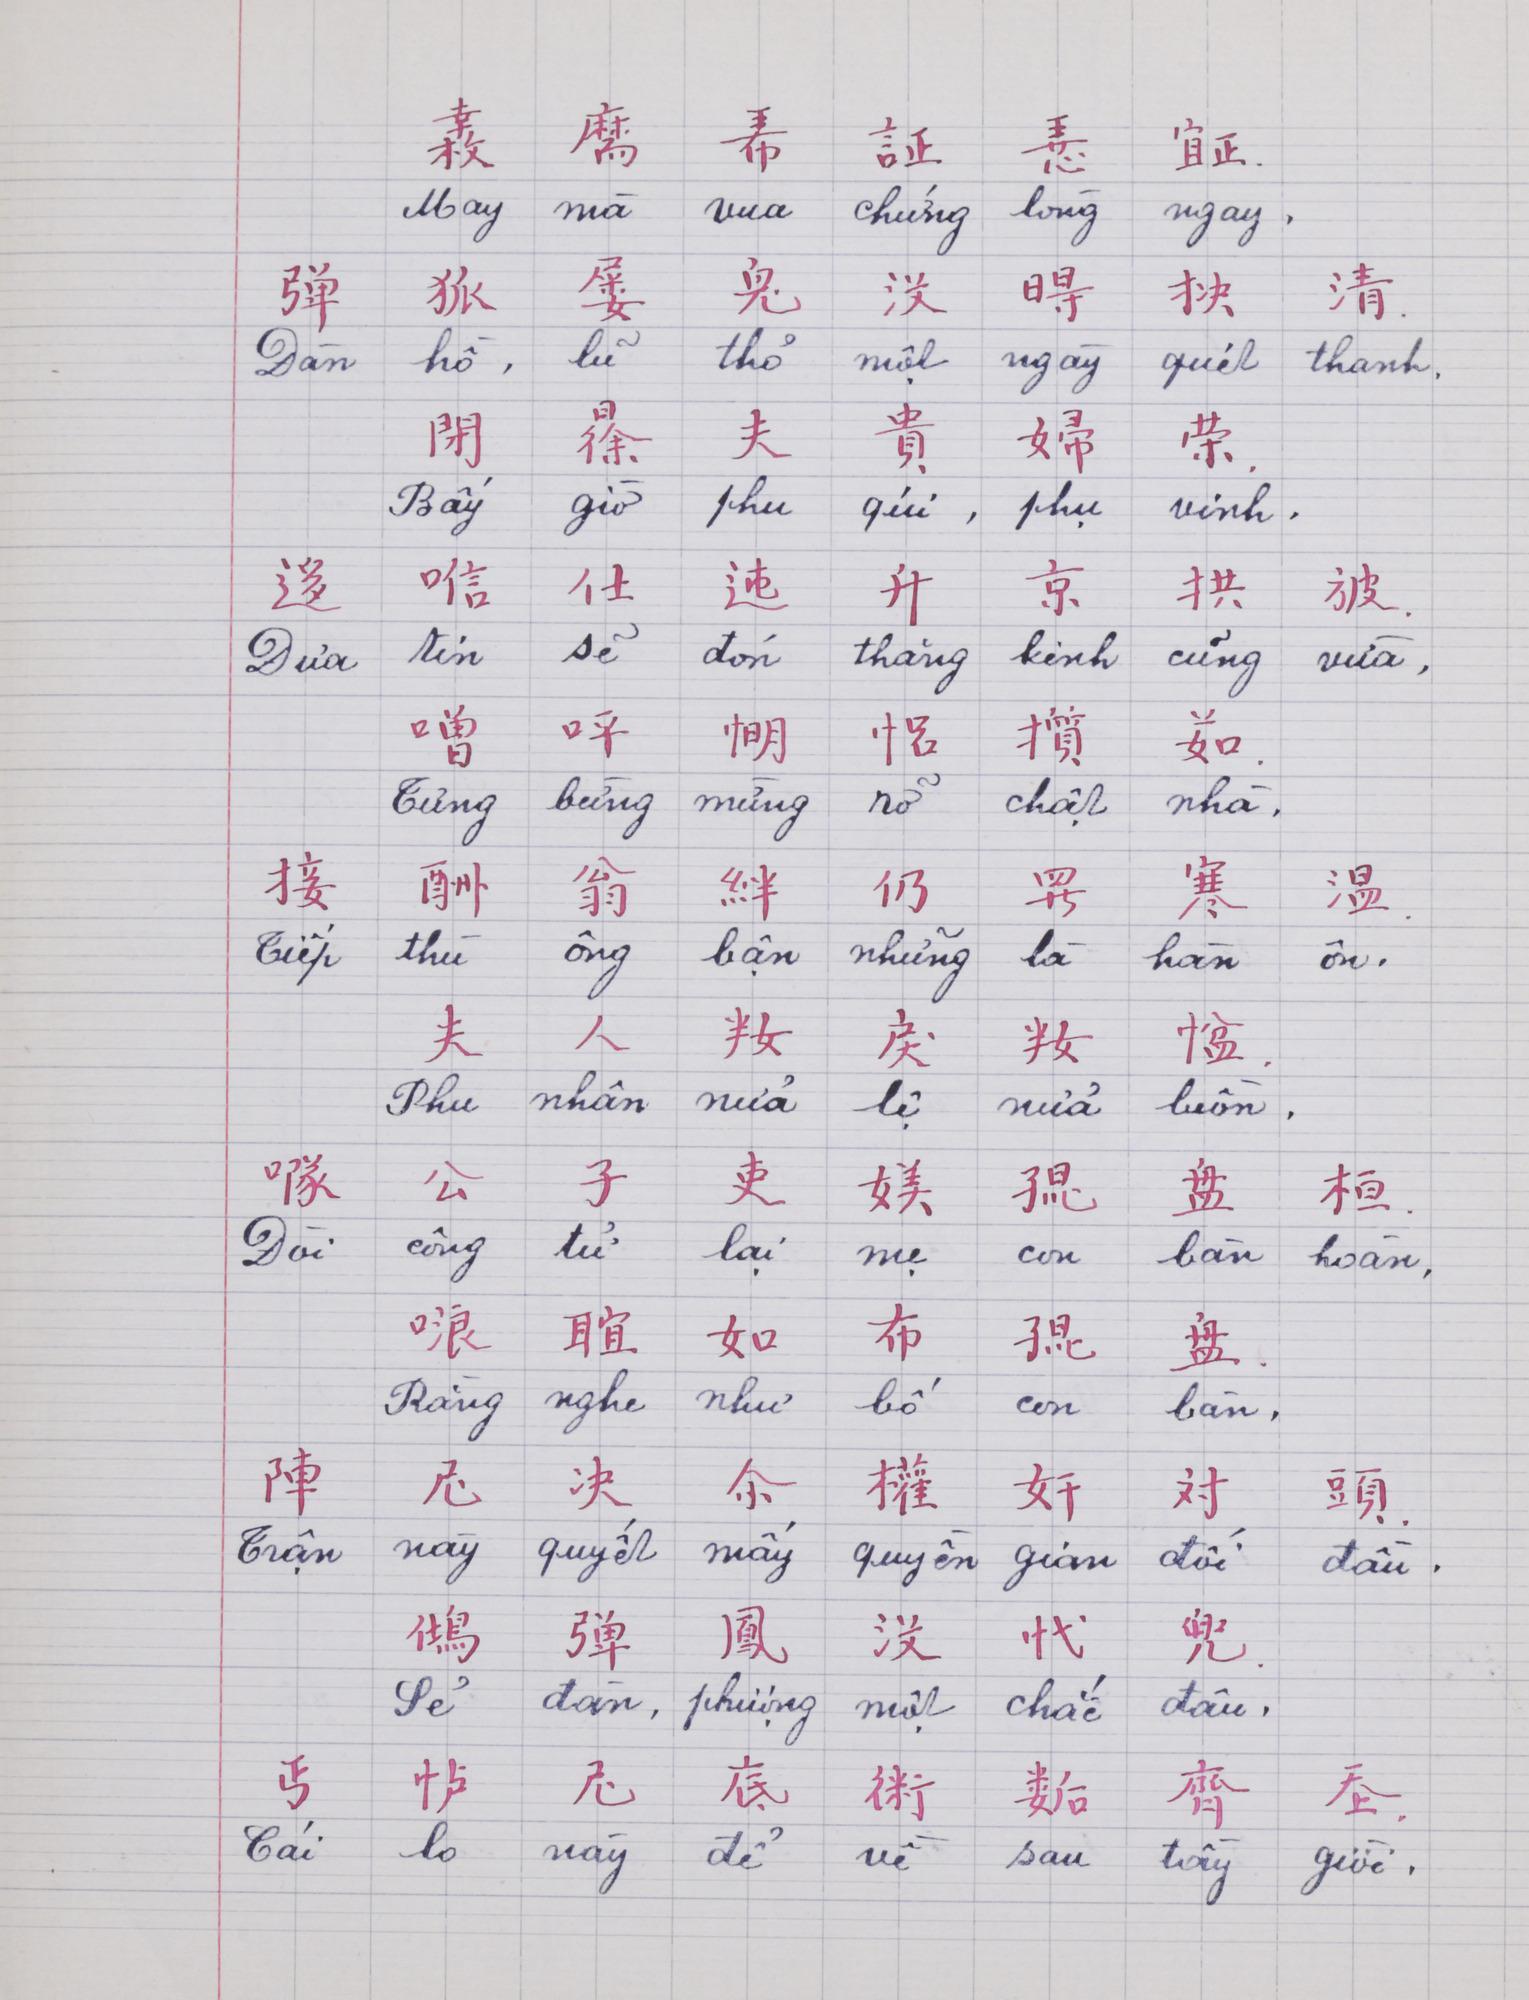 𢚁 麿 𢂜 証 𢚸 𣦍.
May mà vua chứng lòng ngay,
弹 狐 屡 兔 没 𣈜 抉 清.
Đàn hồ, lũ thỏ một ngày quét thanh.
閉 𣇞 夫 貴 婦 荣.
Bấy giờ phu qúi, phụ vinh.
迻 㗂 仕 迍 升 京 拱 𣃣.
Đưa tin sẽ đón thăng kinh cũng vừa,
噌 呯 𢜠 㤝 𢹅 茹.
Tưng bừng mừng rỡ chật nhà,
接 酬 翁 絆 仍 𪜀 寒 温.
Tiếp thù ông bận những là hàn ôn.
夫 人 𡛤 戾 𡛤 𢞂.
Phu nhân nửa lệ nửa buồn,
㗿 公 子 吏 媄 𡥵 盘 桓.
Đòi công tử lại mẹ con bàn hoàn,
哴 𦖑 如 布 𡥵 盘.
Rằng nghe như bố con bàn,
陣 尼 决 尒 權 奸 对 頭.
Trận này quyết mấy quyền gian đối đầu.
鵤 弹 鳳 没 忕 兜.
Sẻ đàn, phượng một chắc đâu,
丐 㤕 尼 底 術 𡢐 齊 𡗶.
Cái lo này để về sau tầy giời,